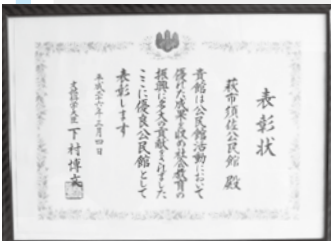 表彰状
萩市須佐公民館 殿
貴館は公民館活動において
優れた成果を収め社会教育の
振興に多大な貢献をされました
ここに優良公民館として
表彰します
平成二十六年三月四日
文部科学大臣 下村博文